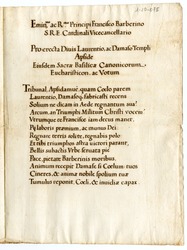 Eminᵐᵒ ac Rᵐᵒ Principi Francisco Barberino
S.R.E. Cardinali Vicecancellario
Pro erecta Diuis Laurentio, ac Damaso Templi
Apside
Eiusdem Sacræ Basilicæ Canonicorum
Eucharisticon, ac Votum
Tribunal Apsidamue quam Coelo parem
Laurentio, Damasoq. fabricasti recens
Solium ne dicam in Aede regnantum sua?
Arcum, an Triumphi Militum Christi vocem
Virumque te Francisce iam decus manet
præmium, ac munus Dei.
Regnare terris solite, regnabis polo
Et tibi triumphos astra uictori parant,
Bellis subactis Vrbe seruata piè
Pace, pietate Barberinis moribus.
Animum recepit Damasi & Coelum tuus
Cineres, & animo nobile spolium tuæ
Tumulus reponit. Coeli, & inuidiæ capax